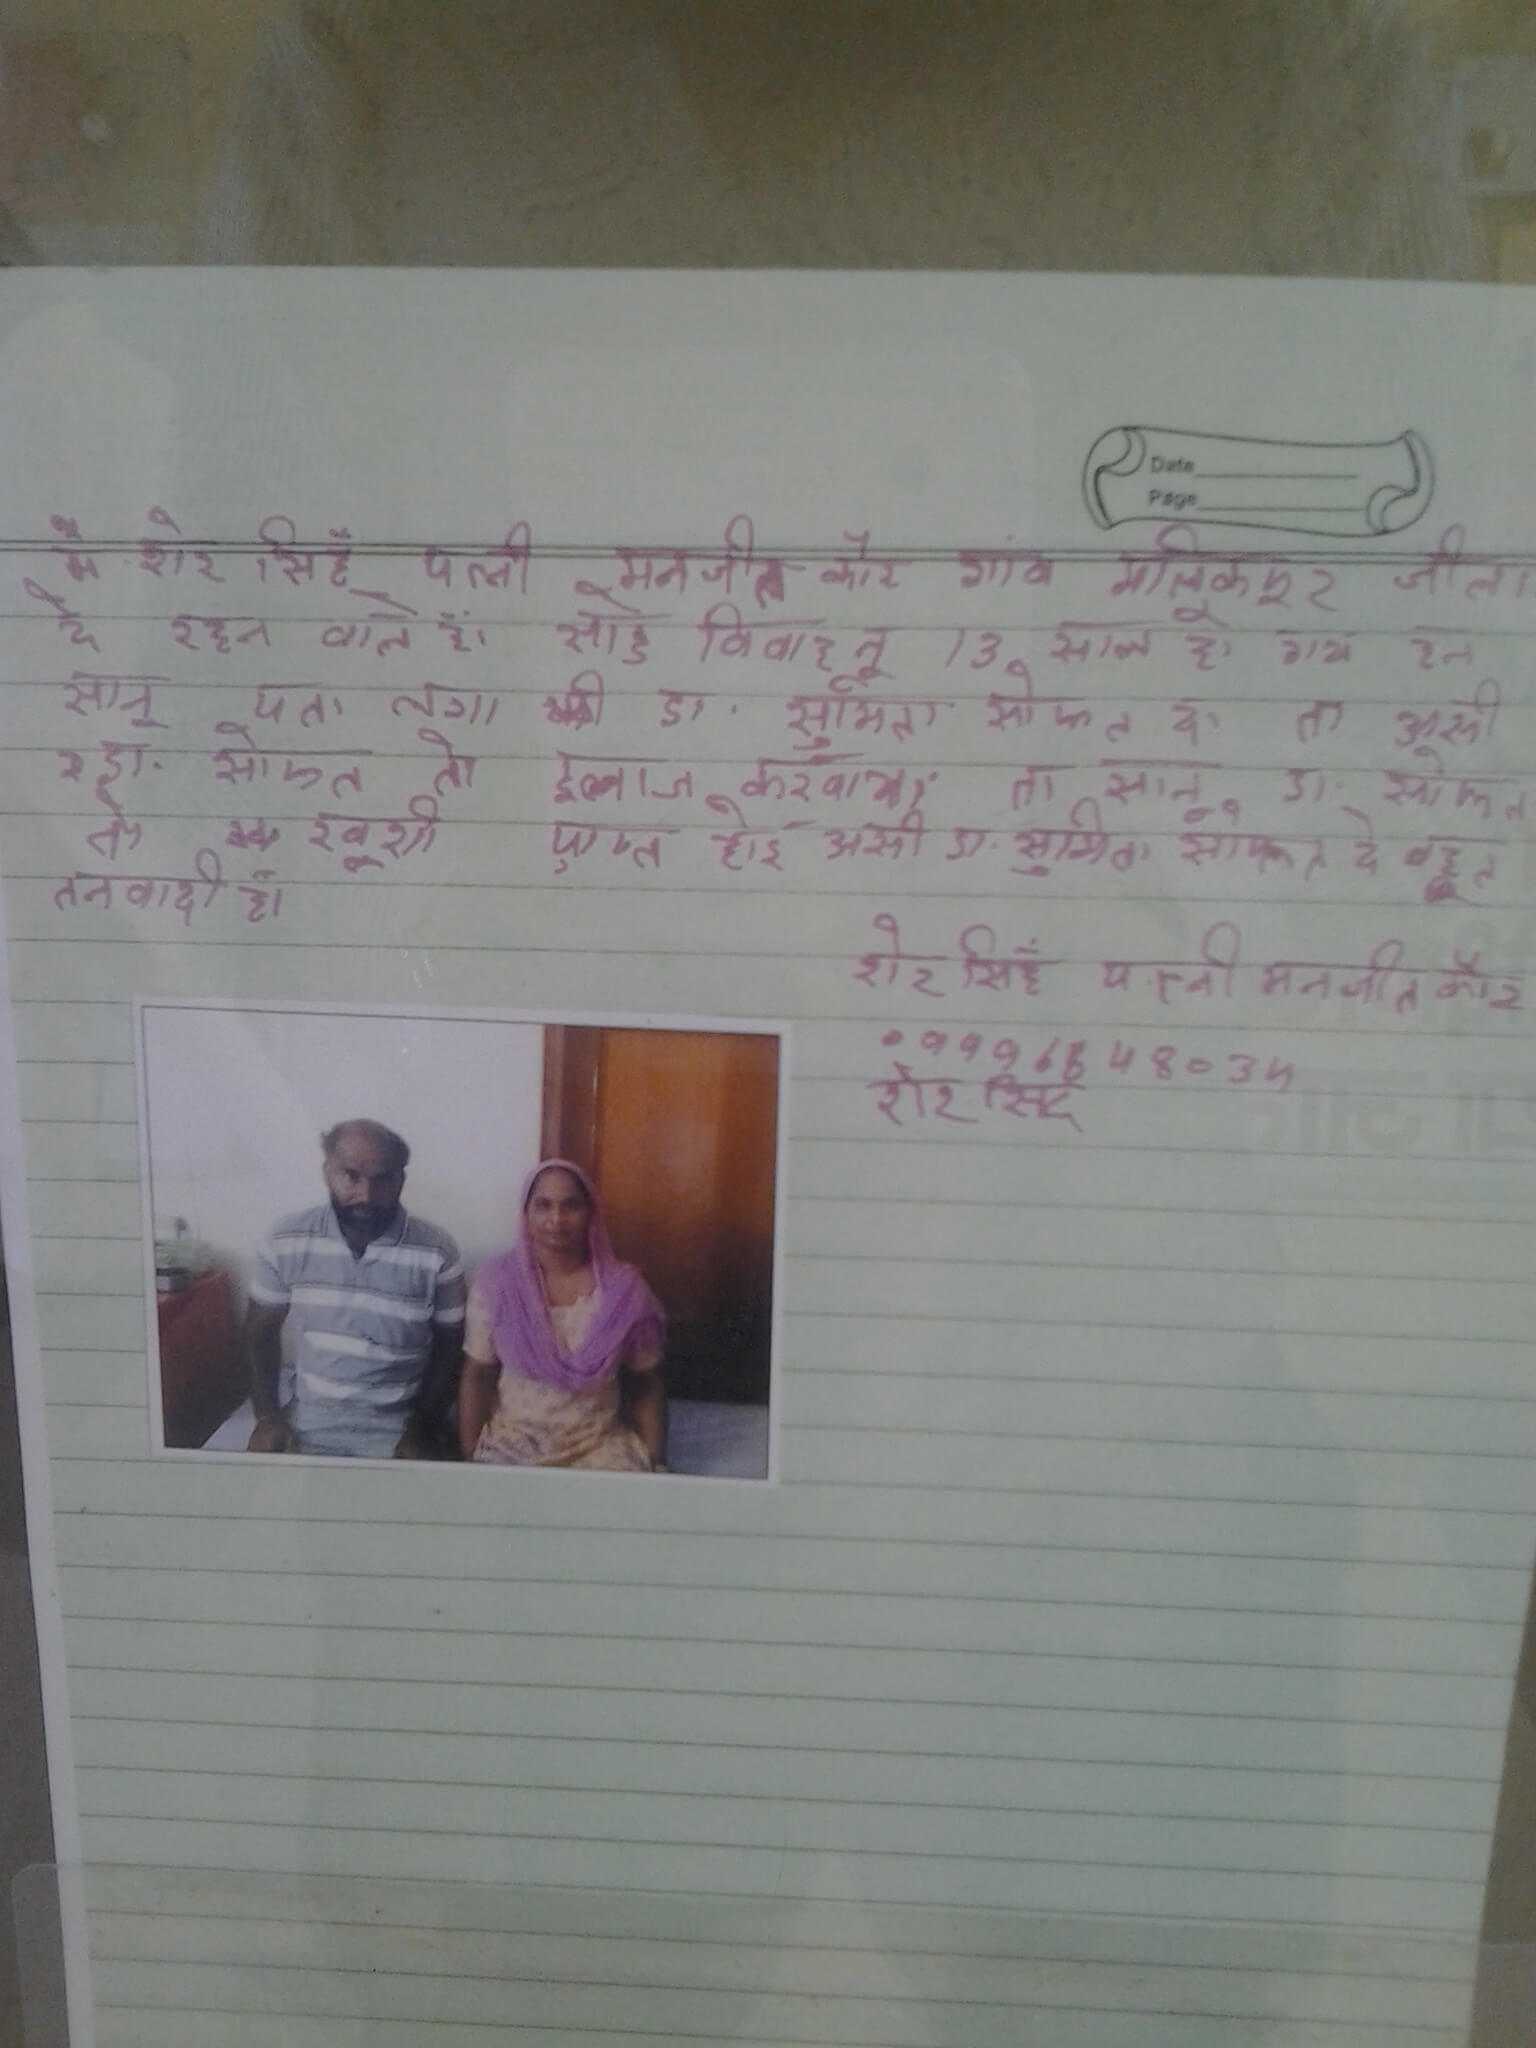 Date
Page
मै शेर सिहँ पत्नी मनजीत कौर गांव मलिकपुर जीला
दे रहन वाले हैं। साडे विवाह नू 13 साल हो गये हन
सानू पता लगा की डा. सुमिता सोफत दा ता असी
डा. सोफत तो ईलाज करवाया ता सानू डा. सोफत
तो खूशी प्राप्त होई असी डा. सुमिता सोफत दे बहूत
तनवादी हां।
शेर सिहँ पत्नी मनजीत कौर
शेर सिहं